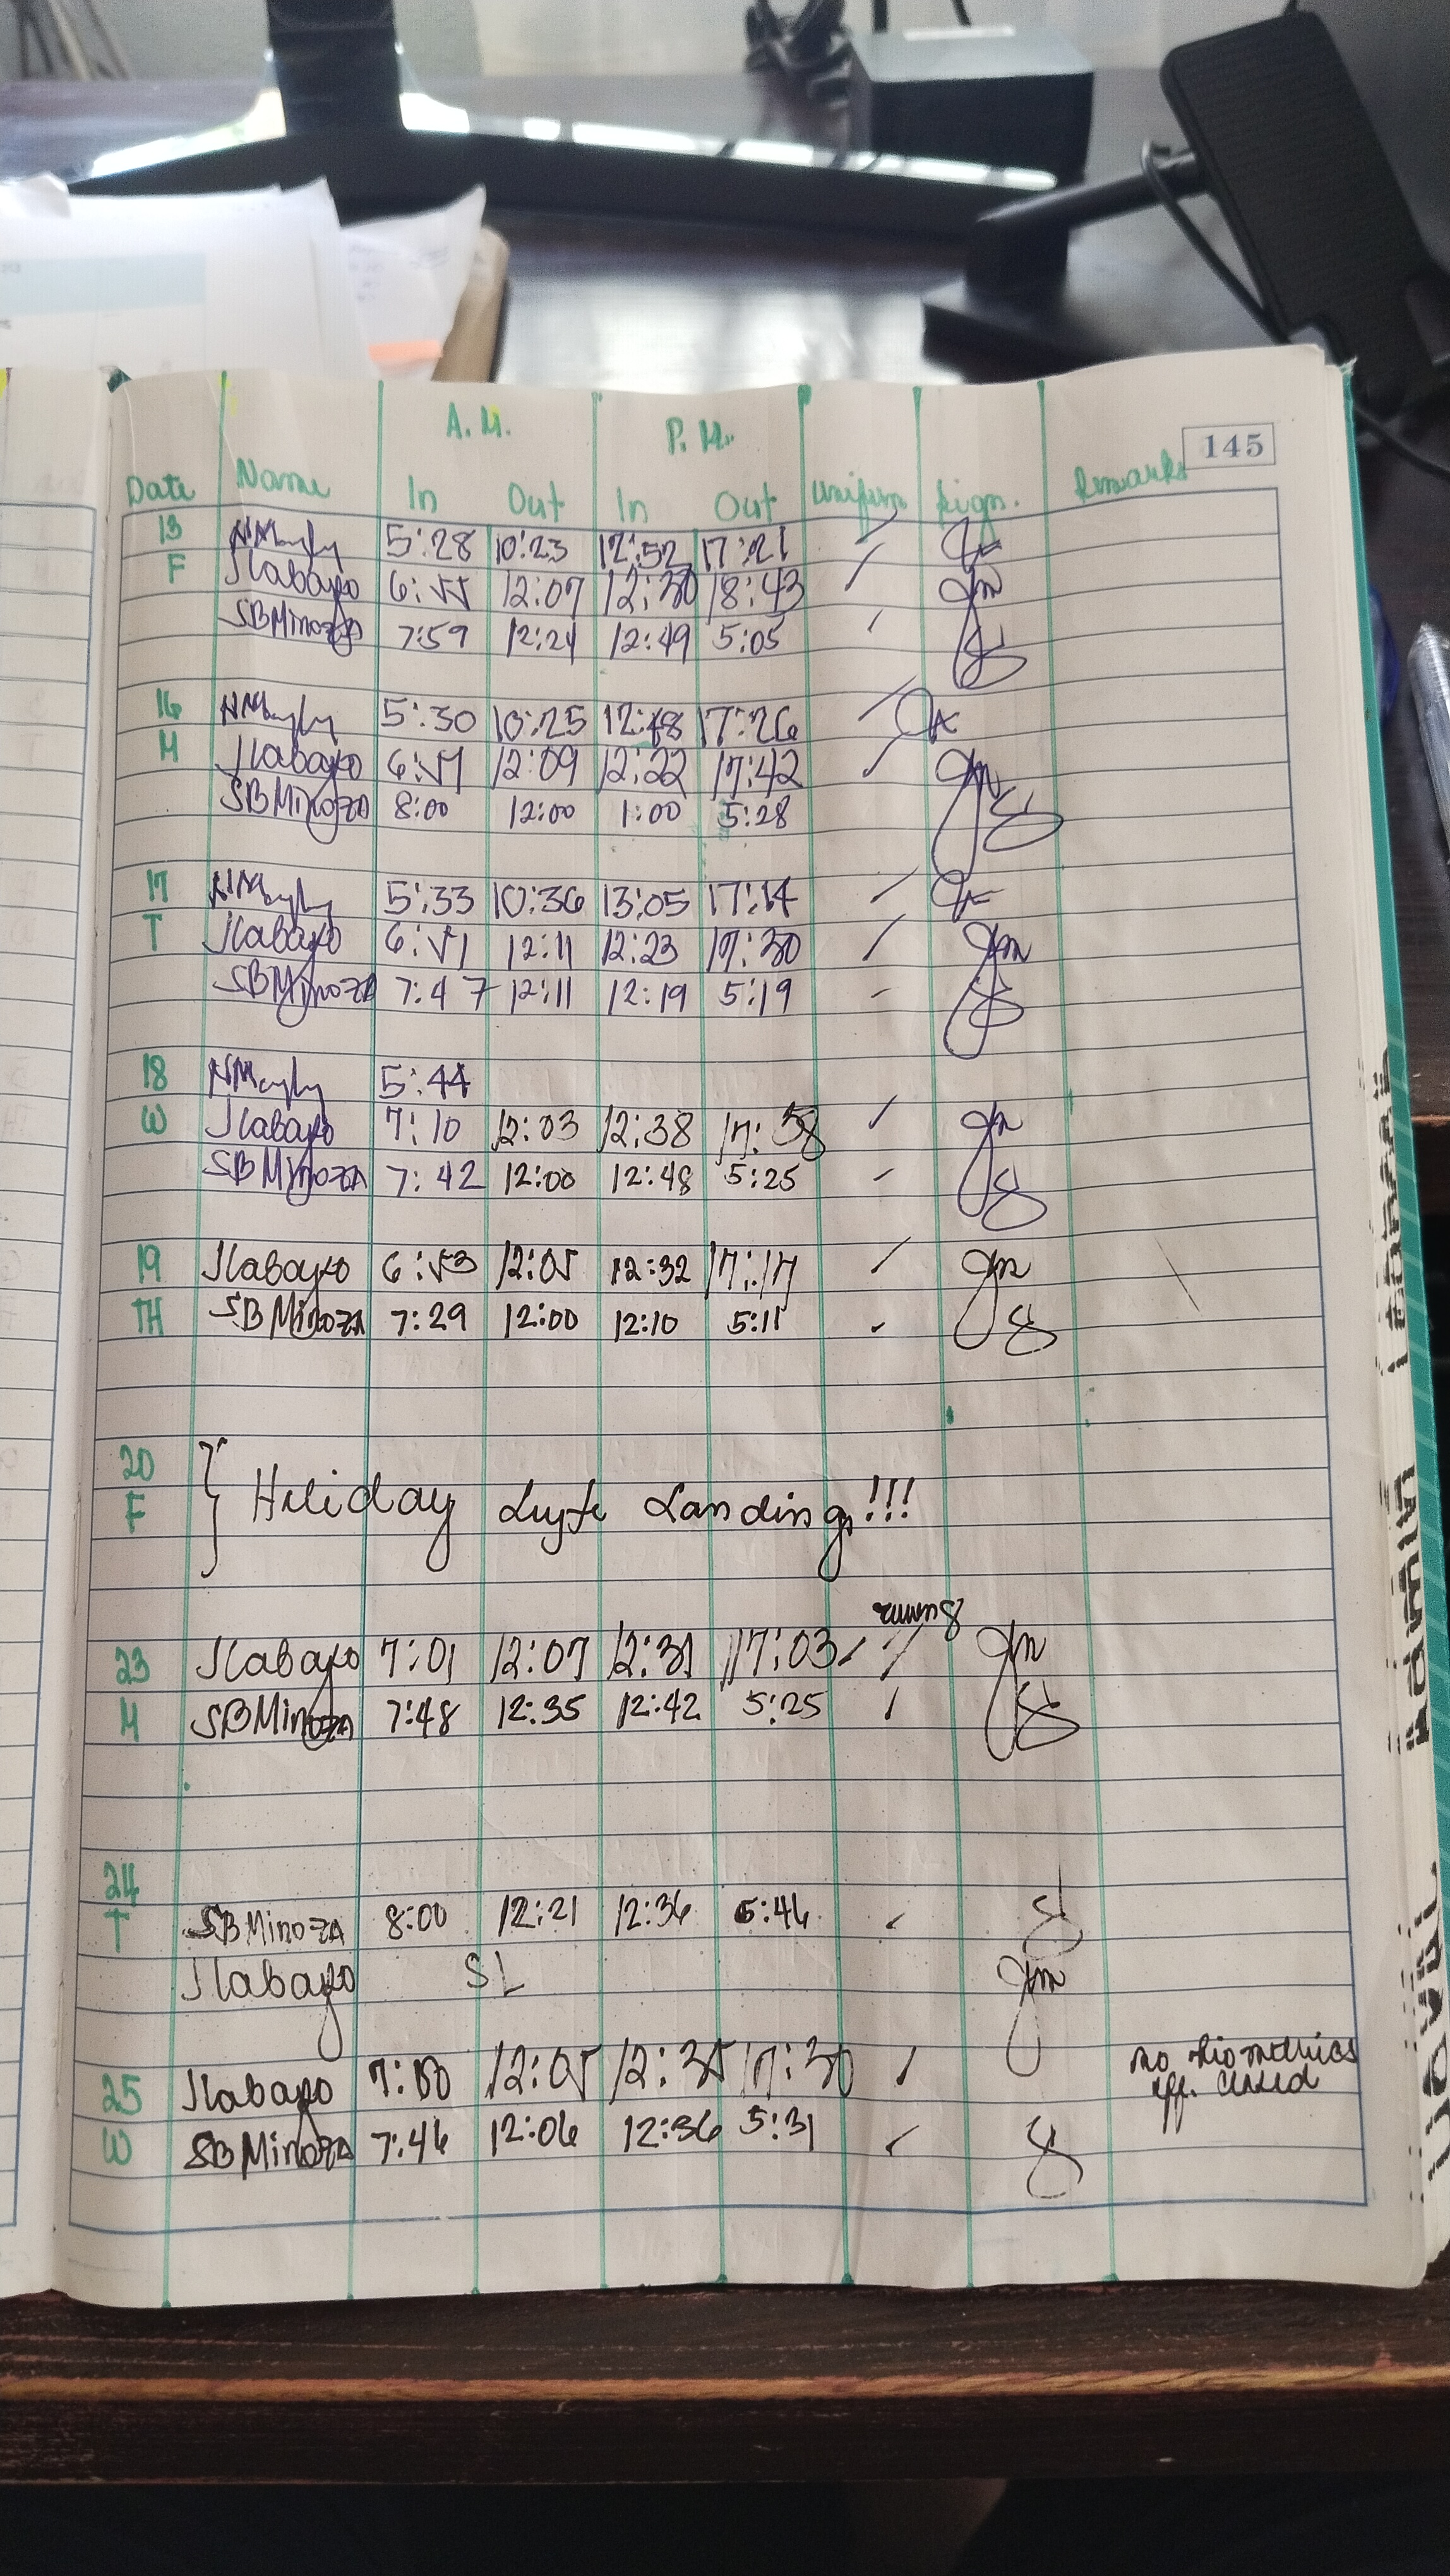 145
A.M. P.M.
Date Name In Out In Out Uniform Sign. Remarks
13 5:28 10:23 12:52 17:21
F Jlabayo 6:55 12:07 12:30 18:43
SBMinoza 7:59 12:24 12:49 5:05
16 5:30 10:25 12:48 17:26
M Jlabayo 6:51 12:09 12:22 17:42
SBMinoza 8:00 12:00 1:00 5:28
17 5:33 10:36 13:05 17:14
T Jlabayo 6:51 12:11 12:23 17:30
SBMinoza 7:47 12:11 12:19 5:19
18 5:44
W Jlabayo 7:10 12:03 12:38 17:58
SBMinoza 7:42 12:00 12:48 5:25
19 Jlabayo 6:53 12:05 12:32 17:17
TH SBMinoza 7:29 12:00 12:10 5:11
20
F Holiday Leyte Landing!!!
23 Jlabayo 7:01 12:07 12:31 17:03
M SBMinoza 7:48 12:35 12:42 5:25
24
T SBMinoza 8:00 12:21 12:36 5:46
Jlabayo SL
25 Jlabayo 12:05 12:35 17:30 no biometrics
off. closed
W SBMinoza 7:46 12:06 12:36 5:31